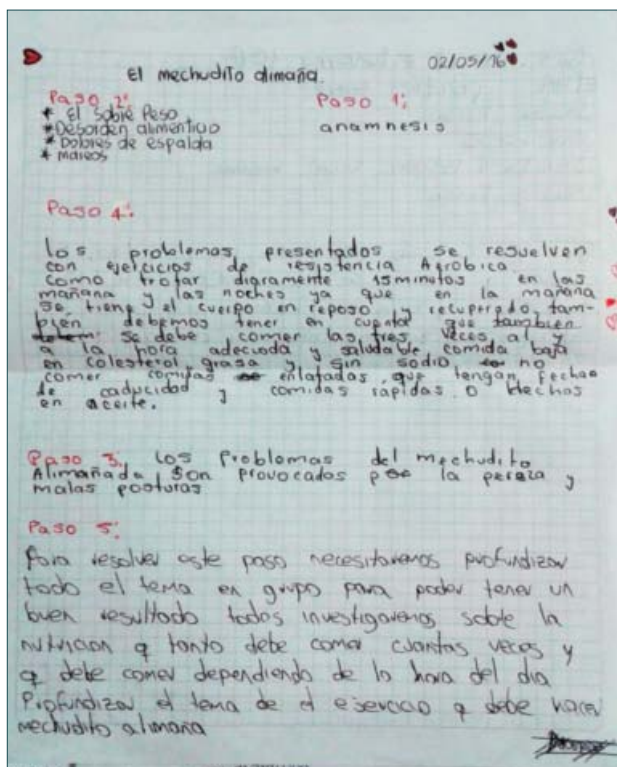 02/05/16
El mechudito alimaña.
Paso 2:
* El Sobre Peso
* Desorden alimenticio
* Dolores de espalda
* mareos
Paso 1:
anamnesis
Paso 4:
los problemas presentados se resuelven
con ejercicios de resistencia Aerobica
como trotar diaramente 15minutos en las
mañana y las noches ya que en la mañana
se tiene el cuerpo en reposo y recuperado, tam-
bien debemos tener en cuenta que tambien
se debe comer las tres veces al y
a la hora adecuda y saludable comida baja
en colesterol, grasa y sin sodio no
comer comidas enlatadas, que tengan fechas
de caducidad y comidas rapidas o Hechas
en aceite.
Paso 3: los problemas del mechudito
Alimañada son provocados por la pereza y
malas posturas
Paso 5:
Para resolver este paso necesitaremos profundizar
todo el tema en grupo para poder tener un
buen resultado todos investigaremos sobre la
nutricion q tanto debe comer cuantas veces y
q debe comer dependiendo de la hora del dia
Profundizar el tema de el ejercicio q debe hacer
mechudito alimaña